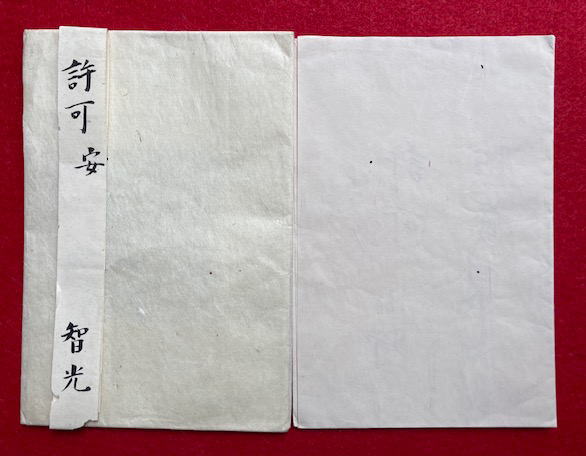 許可安
智光